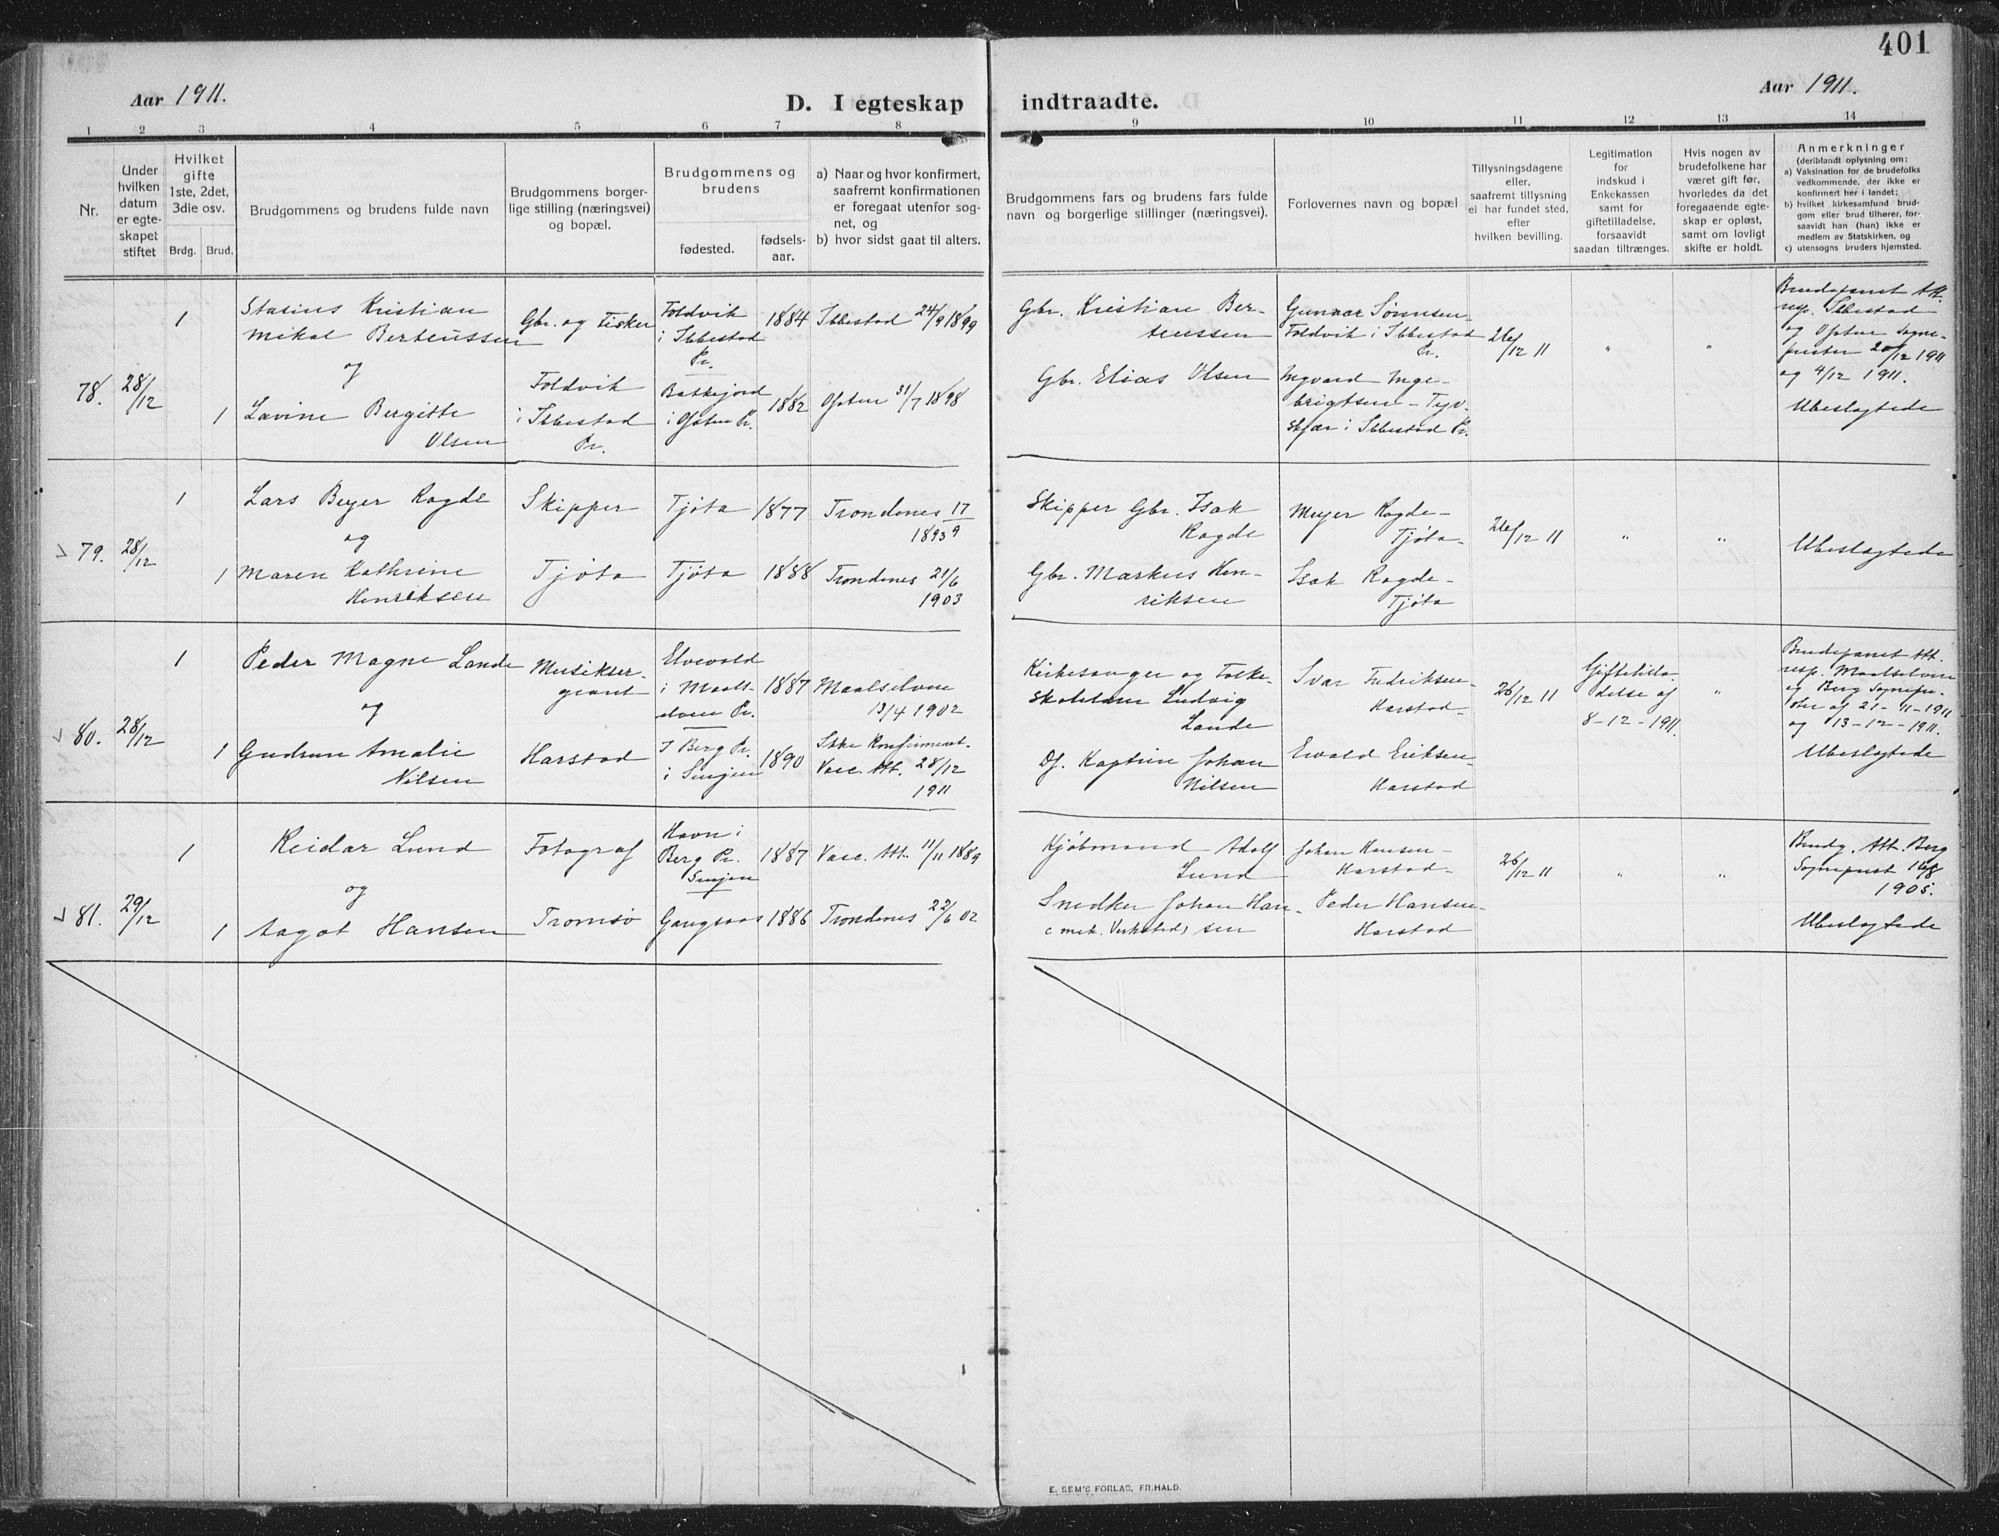 401
Aar 1911.
D. I egteskap indtraadte.
Aar 1911.
1 2 3 4 5 6 7 8 9 10 11 12 13 14
Nr.
Under
hvilken
datum
er egte-
skapet
stiftet
Hvilket
gifte
1ste, 2det,
3die osv.
Brdg. Brud.
Brudgommens og brudens fulde navn
Brudgommens borger-
lige stilling (næringsvei)
og bopæl.
Brudgommens og
brudens
fødested.
fødsels-
aar.
a) Naar og hvor konfirmert,
saafremt konfirmationen
er foregaat utenfor sog-
net, og
b) hvor sidst gaat til alters.
Brudgommens fars og brudens fars fulde
navn og borgerlige stillinger (næringsvei).
Forlovernes navn og bopæl
Tillysningsdagene
eller,
saafremt tillysning
ei har fundet sted,
efter
hvilken bevilling.
Legitimation
for
indskud i
Enkekassen
samt for
giftetilladelse,
forsaavidt
saadan tiltrænges.
Hvis nogen av
brudefolkene har
været gift før,
hvorledes da det
foregaaende egte-
skap er opløst,
samt om lovligt
skifte er holdt.
Anmerkninger
(deriblandt oplysning om:
a) Vaksination for de brudefolks
vedkommende, der ikke er
konfirmert her i landet;
b) hvilket kirkesamfund brud-
gom eller brud tilhører, for-
saavidt han (hun) ikke er
medlem av Statskirken, og
c) utensogns bruders hjemsted.
78. 28/12
1
1
Kristian
Mikal Berteussen
og
Lavine Bergitte
Olsen
Gbr. og Fisker
Foldvik
i Ibbestad
Pr.
Foldvik
i Ibbestad
Pr.
i Ofoten Pr.
1884
1882
Ibbestad 24/9 1899
Ofoten 31/7 1898
Gbr. Kristian Ber-
teussen
Gbr. Elias Olsen
Gunnar
Foldvik i Ibbestad
Pr.
Ingvard Inge-
brigtsen –
i Ibbestad Pr.
26/12 11
"
"
Att.
resp. Ibbestad
og Ofoten Sogne-
prester 20/12 1911
og 4/12 1911.
Ubeslagtede
79. 28/12
1
1
Lars Beyer Ragde
og
Maren Kathrine
Henriksen
Skipper
Tjøta
Tjøta
Tjøta
1877
1888
Trondenes 17/9
1893
Trondenes 21/6
1903
Skipper Gbr. Isak
Ragde
Gbr. Markus Hen-
riksen
Meyer Ragde –
Tjøta –
Isak Ragde –
Tjøta
26/12 11
"
"
Ubeslagtede
80. 28/12
1
1
Peder Magne Lande
og
Gudrun Amalie
Nilsen
Musikser-
giant
Harstad
Elvevold
i Maals-
elven Pr.
I Berg Pr.
i Senjen
1887
1890
Maalselven
13/4 1902
Ikke Konfirmeret.
Vacc. Att. 28/12
1911
Kirkesanger og Folke-
skolelærer Ludvig
Lande
Df. Kaptein Johan
Nilsen
Ivar Fredriksen
Harstad –
Ewald Eriksen
Harstad
26/12 11
Giftetilla-
delse af
8-12-1911.
"
Att.
resp. Maalselven
og Berg Sognepre-
ster af 21-11-1911
og 13-12-1911.
Ubeslagtede
81. 29/12
1
1
Reidar Lund
og
Aagot Hansen
Fotograf
Tromsø
Havn i
Berg Pr.
Senjen
Gangsaas
1887
1886
Vacc. Att. 11/11 1889
Trondenes 22/6 02
Kjøbmand Adolf
Lund
Snedker Johan Han-
sen
(mek. Verksted)
Johan Hansen –
Harstad –
Peder Hansen –
Harstad
26/12 11
"
"
Att. Berg
Sogneprest 16/8
1905.
Ubeslagtede
E. SEM'S FORLAG, FR.HALD.